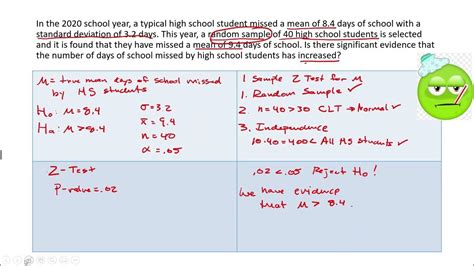 In the 2020 school year, a typical high school student missed a mean of 8.4 days of school with a
standard deviation of 3.2 days. This year, a random sample of 40 high school students is selected
and it is found that they have missed a mean of 9.4 days of school. Is there significant evidence that
the number of days of school missed by high school students has increased?
μ = true mean days of school missed
by HS students
H₀: μ = 8.4
Hₐ: μ > 8.4
σ = 3.2
x̄ = 9.4
n = 40
α = .05
1 Sample Z Test for μ
1. Random Sample ✓
2. n = 40 > 30 CLT → Normal ✓
3. Independence
10·40 = 400 < All HS Students ✓
Z-Test
P-value = .02
.02 < .05 Reject H₀!
We have evidence
that μ > 8.4.